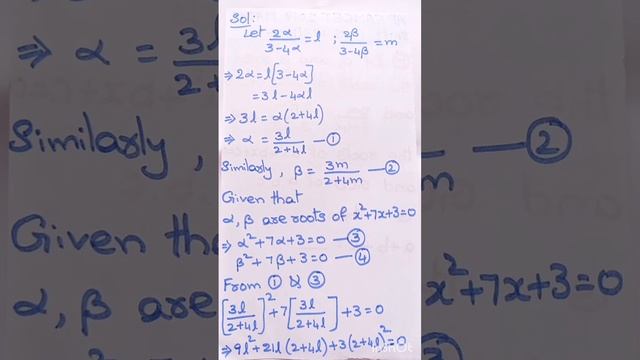 Sol:
Let 2α/(3-4α) = l ; 2β/(3-4β) = m
⇒ 2α = l[3-4α]
= 3l - 4αl
⇒ 3l = α(2+4l)
⇒ α = 3l/(2+4l) — ①
Similarly, β = 3m/(2+4m) — ②
Given that
α, β are roots of x²+7x+3=0
⇒ α²+7α+3=0 — ③
β²+7β+3=0 — ④
From ① & ③
[3l/(2+4l)]² + 7[3l/(2+4l)] + 3 = 0
⇒ 9l² + 21l(2+4l) + 3(2+4l)² = 0